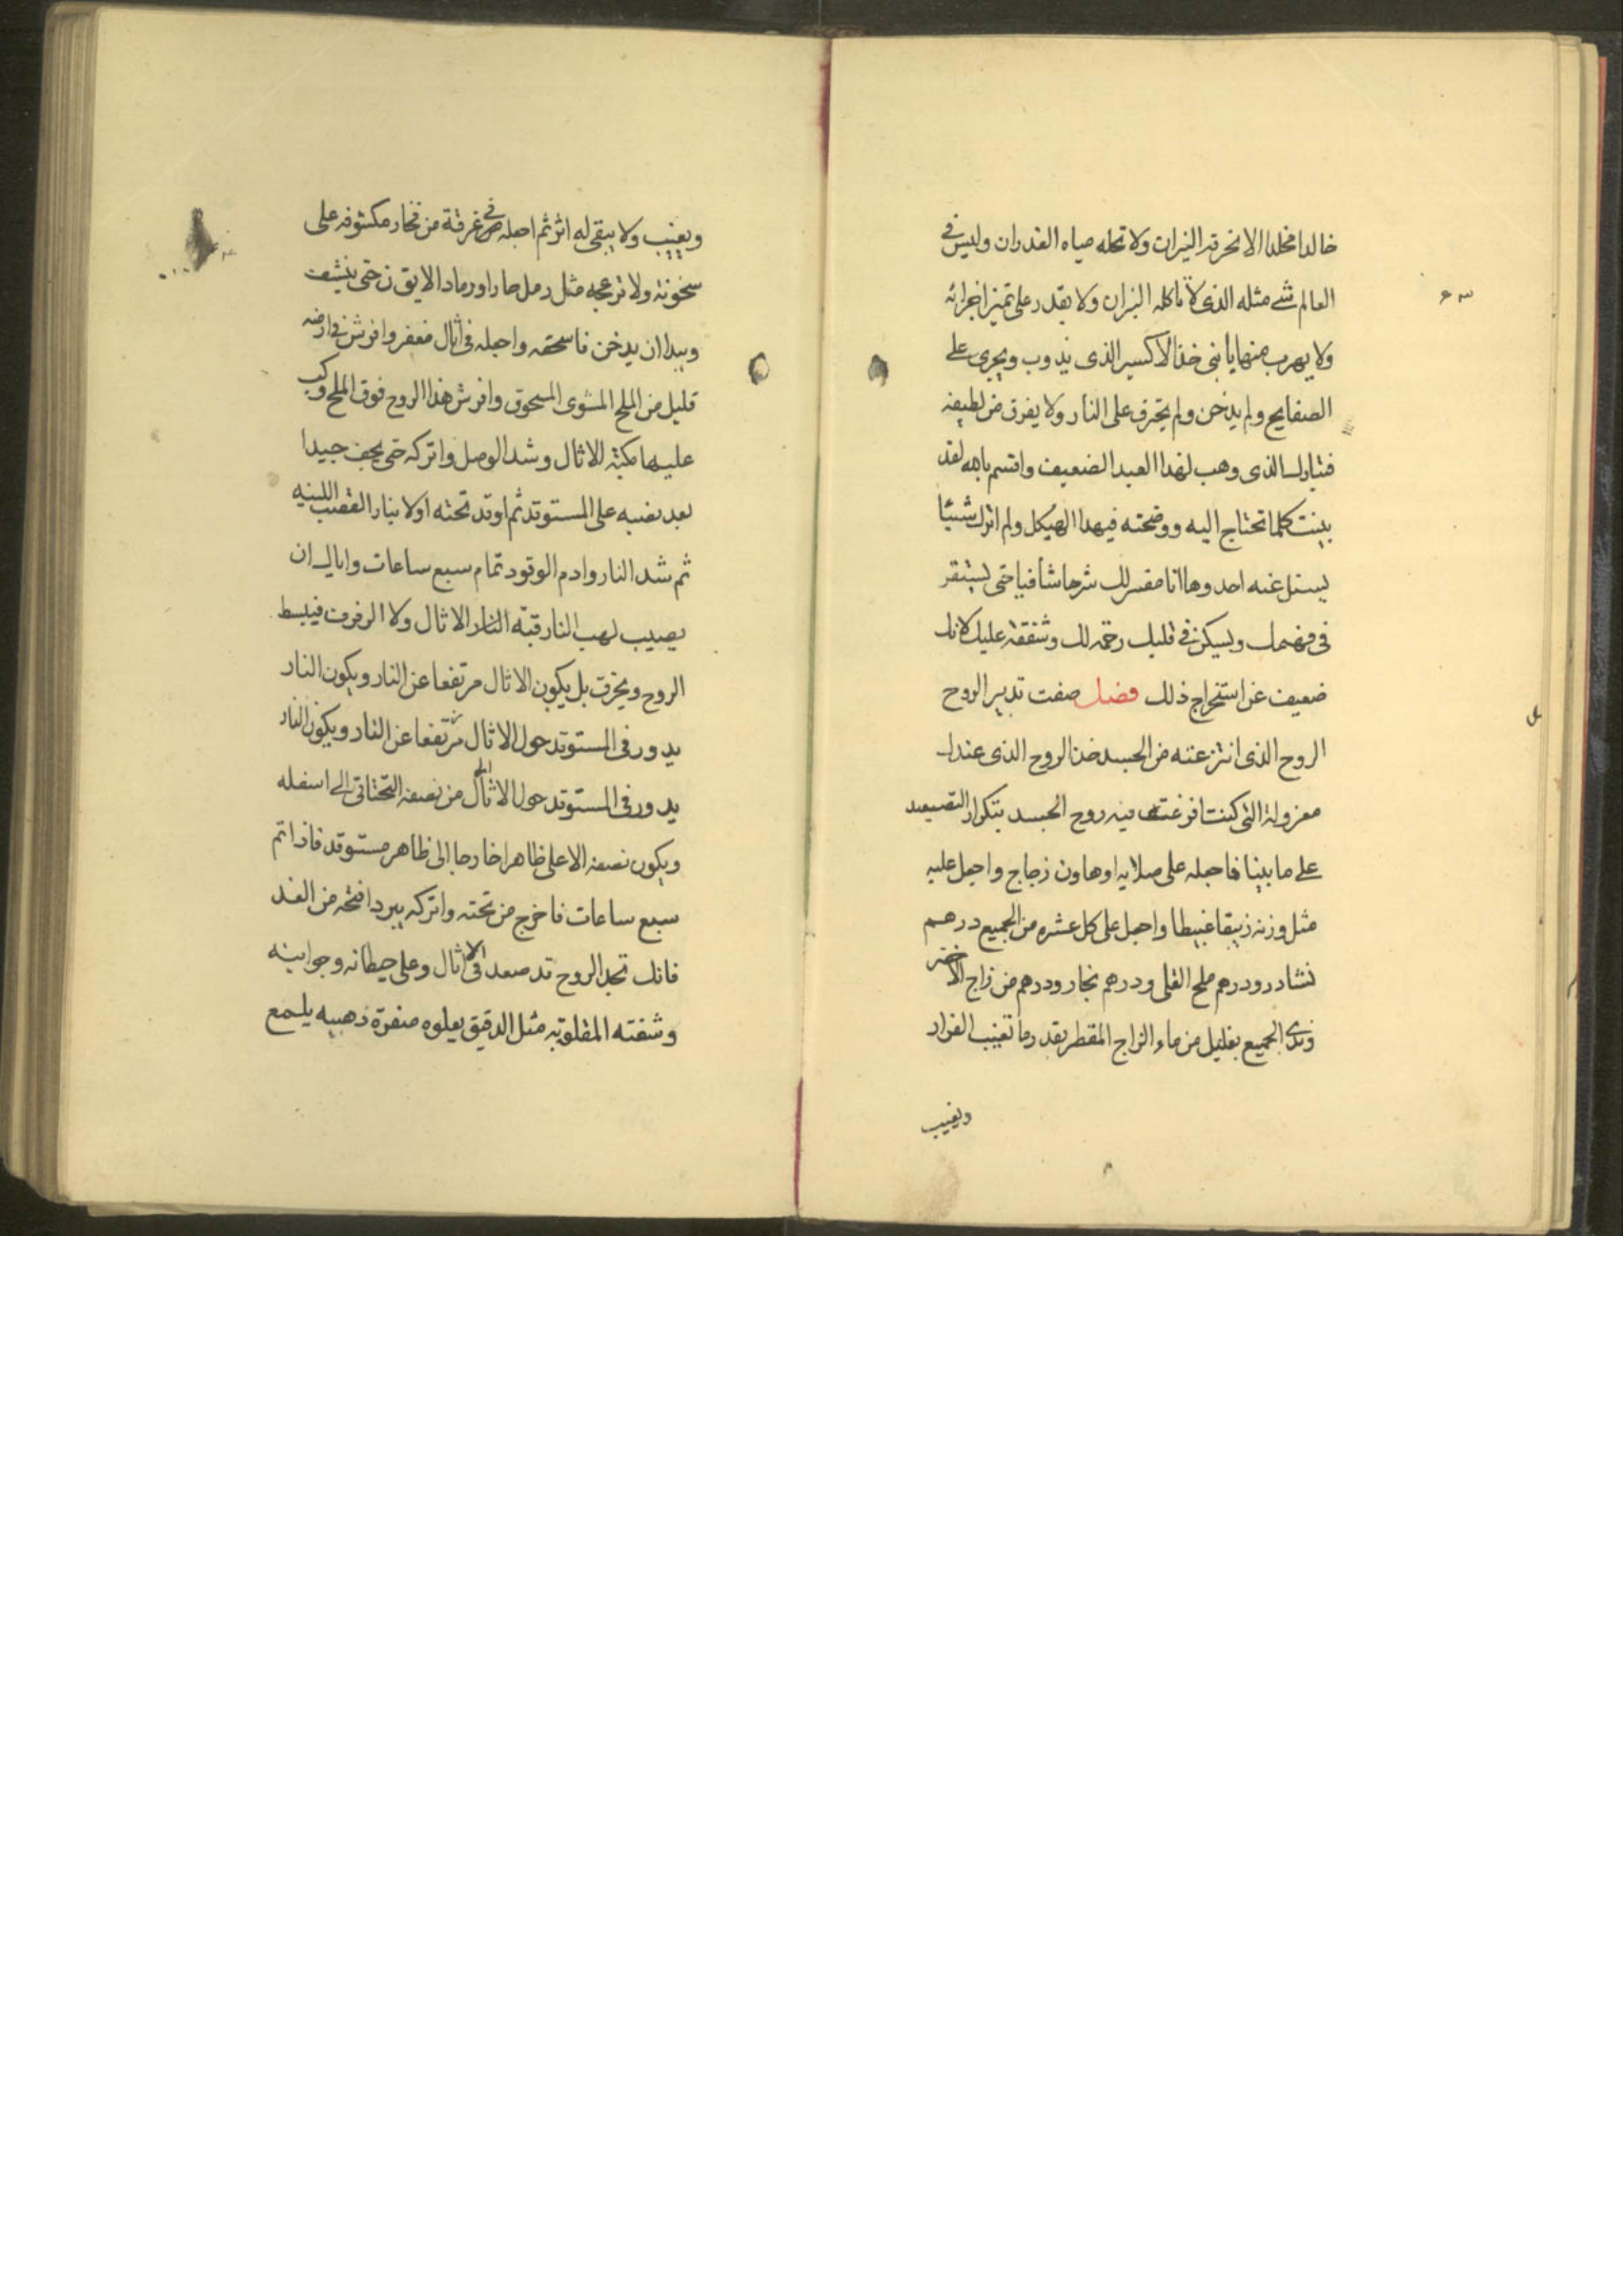 خالدا مخلدا لا تحرقه النيران ولا تحله مياه الغدران وليس في
العالم شے مثله الذى لا تاكله النيران ولا يقدر على تميز اجزائه
ولا يهرب منها يا بنى خذ الاكسير الذى يذوب ويجرى على
الصفايح ولم يدخن ولم يحترق على النار ولا يفرق من لطيفه
فتبارك الذى وهب لهذا العبد الضعيف واقسم بالله لقد
بينت كلما تحتاج اليه ووضحته فيهدا الهيكل ولم اترك شيئا
يسئل عنه احد وها انا مفسر لك شرحا شافيا حتى يستقر
فى فهمك ويسكن فى قلبك رحمة لك وشفقة عليك لانك
ضعيف عن استخراج ذلك فصل صفت تدبير الروح
الروح الذى انتزعته من الجسد خذ الروح الذى عندك
معزولة التى كنت افرغت فيه روح الجسد بتكرار التصعيد
على ما بينا فاجعله على صلايه او هاون زجاج واجعل عليه
مثل وزنه زيبقا غبيطا واجعل على كل عشره من الجميع درهم
نشادر ودرهم ملح القلى ودرهم نجار ودرهم من زاج الاخضر
وندى الجميع بقليل من ماء الزاج المقطر بقدر ما تغيب الفرار
ويغيب
ويغيب ولا يبقى له اثر ثم اجعله فى غرفة من فخار مكشوفه على
سخونة ولا ترعجه مثل رمل حار او رماد الايق ن حتى ينشف
ويبدا ان يدخن فاسحقه واجعله فى اثال مغفر وافرش فى ارضه
قليل من الملح المشوى المسحوق وافرش هذا الروح فوق الملح وركب
عليها مكبة الاثال وشد الوصل واتركه حتى يجف جيدا
بعد نصبه على المستوقد ثم اوقد تحته اولا بنار القصب اللينه
ثم شد النار وادم الوقود تمام سبع ساعات واياك ان
يصيب لهب النار قبة النار الاثال ولا الرفرف فيبسط
الروح ويحرق بل يكون الاثال مرتفعا عن النار ويكون النار
يدور فى المستوقد حول الاثال مرتفعا عن النار ويكون النار
يدور فى المستوقد حول الاثال من نصفه التحتانى الى اسفله
ويكون نصفه الاعلى ظاهرا خارجا الى ظاهر مستوقد فاذا تم
سبع ساعات فاخرج من تحته واتركه يبرد افتحه من الغد
فانك تجد الروح قد صعد فى الاثال وعلى حيطانه وجوابنه
وشفته المقلوبه مثل الدقيق يعلوه صفرة ذهبيه يلمع